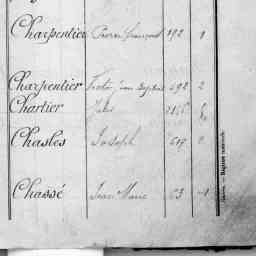 Charpentier Pierre François 192 1
Charpentier Victor Jean Baptiste 492 2
Chartier Jules
Chasles Joseph 617 2
Chassé Jean Marie 63 1